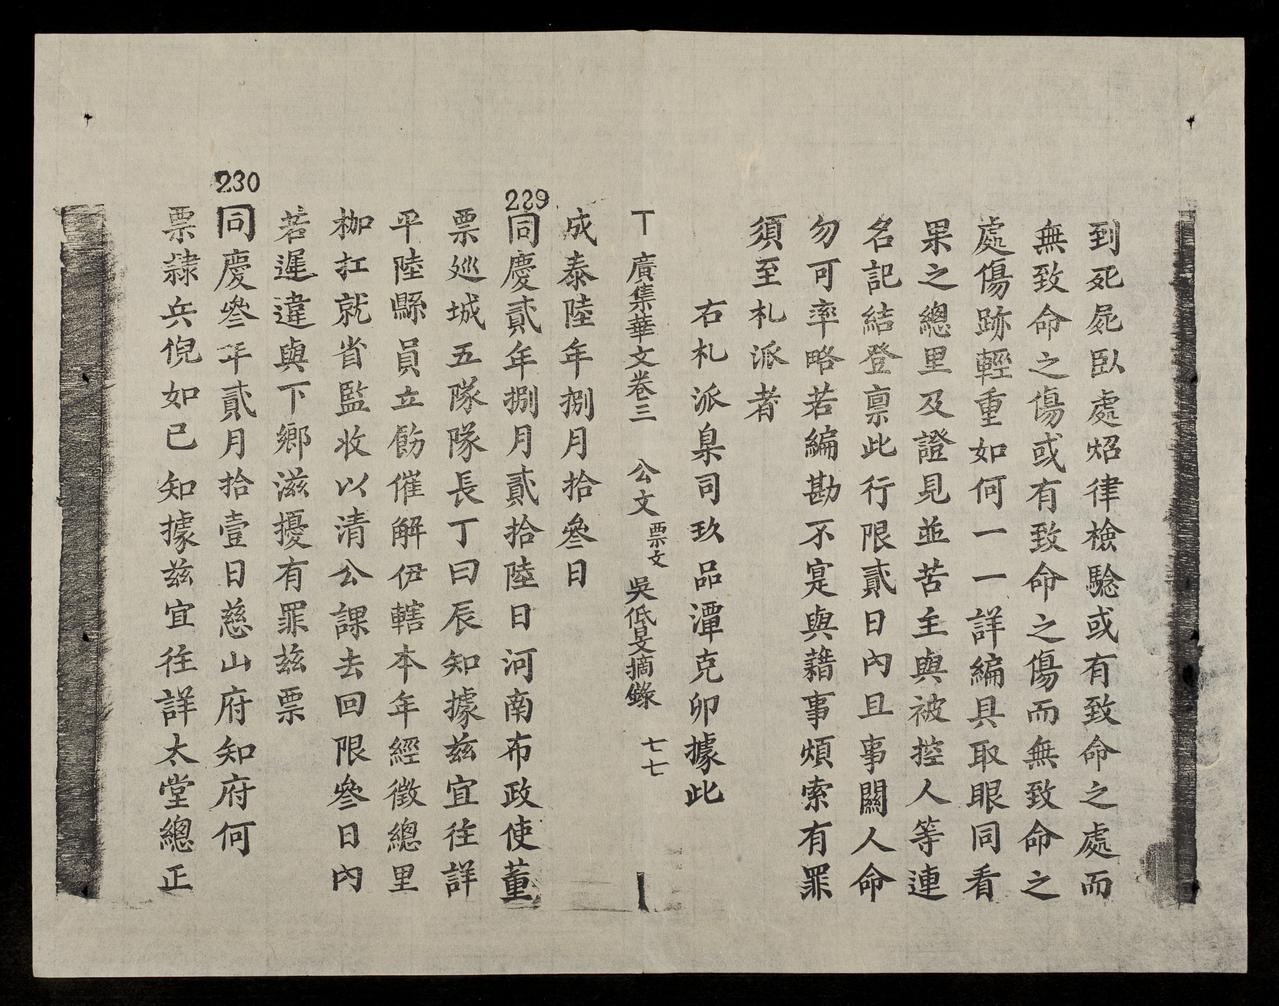 到死屍臥處炤律檢騐或有致命之處而
無致命之傷或有致命之傷而無致命之
處傷跡輕重如何一一詳編具取眼同看
果之總里及證見並苦主與被控人等連
名記結登禀此行限貳日內且事關人命
勿可率略若編勘不寔與藉事煩索有罪
須至札派者
右札派臬司玖品潭克卯據此
廣集華文卷三 公文 票文 吳低旻摘錄 七七
成泰陸年捌月拾叄日
229
同慶貳年捌月貳拾陸日河南布政使董
票廵城五隊隊長丁曰辰知據兹宜徃詳
平陸縣員立飭催解伊轄本年經徵總里
枷扛就省監收以清公課去回限叄日內
若遲違與下鄉滋擾有罪兹票
230
同慶叄年貳月拾壹日慈山府知府何
票隸兵倪如已知據兹宜徃詳太堂總正